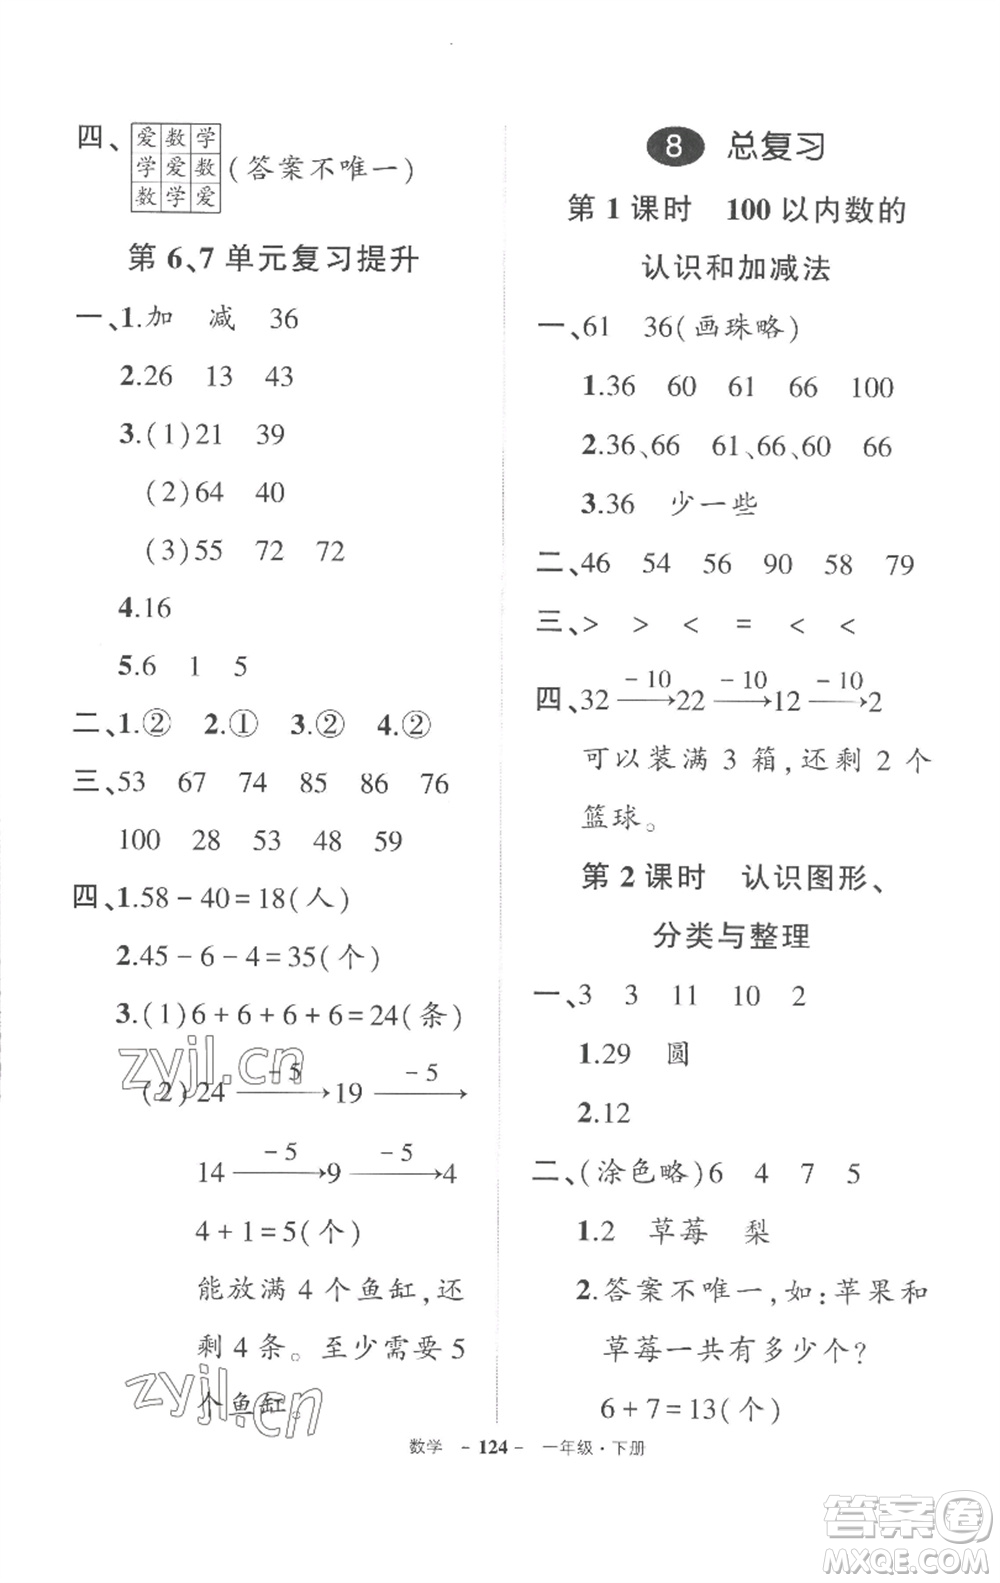 四、
爱数学
学爱数
数学爱
(答案不唯一)
第6、7单元复习提升
一、1.加 减 36
2.26 13 43
3.(1)21 39
(2)64 40
(3)55 72 72
4.16
5.6 1 5
二、1.② 2.① 3.② 4.②
三、53 67 74 85 86 76
100 28 53 48 59
四、1.58-40=18(人)
2.45-6-4=35(个)
3.(1)6+6+6+6=24(条)
-5 -5
(2)24→19→
-5 -5
14→9→4
4+1=5(个)
能放满4个鱼缸,还
剩4条。至少需要5
个鱼缸。
8 总复习
第1课时 100以内数的
认识和加减法
一、61 36(画珠略)
1.36 60 61 66 100
2.36、66 61、66、60 66
3.36 少一些
二、46 54 56 90 58 79
三、> > < = < <
-10 -10 -10
四、32→22→12→2
可以装满3箱,还剩2个
篮球。
第2课时 认识图形、
分类与整理
一、3 3 11 10 2
1.29 圆
2.12
二、(涂色略)6 4 7 5
1.2 草莓 梨
2.答案不唯一,如:苹果和
草莓一共有多少个?
6+7=13(个)
数学 -124- 一年级·下册
zyjl.cn
zyjl.cn
答案圈
MXQE.COM